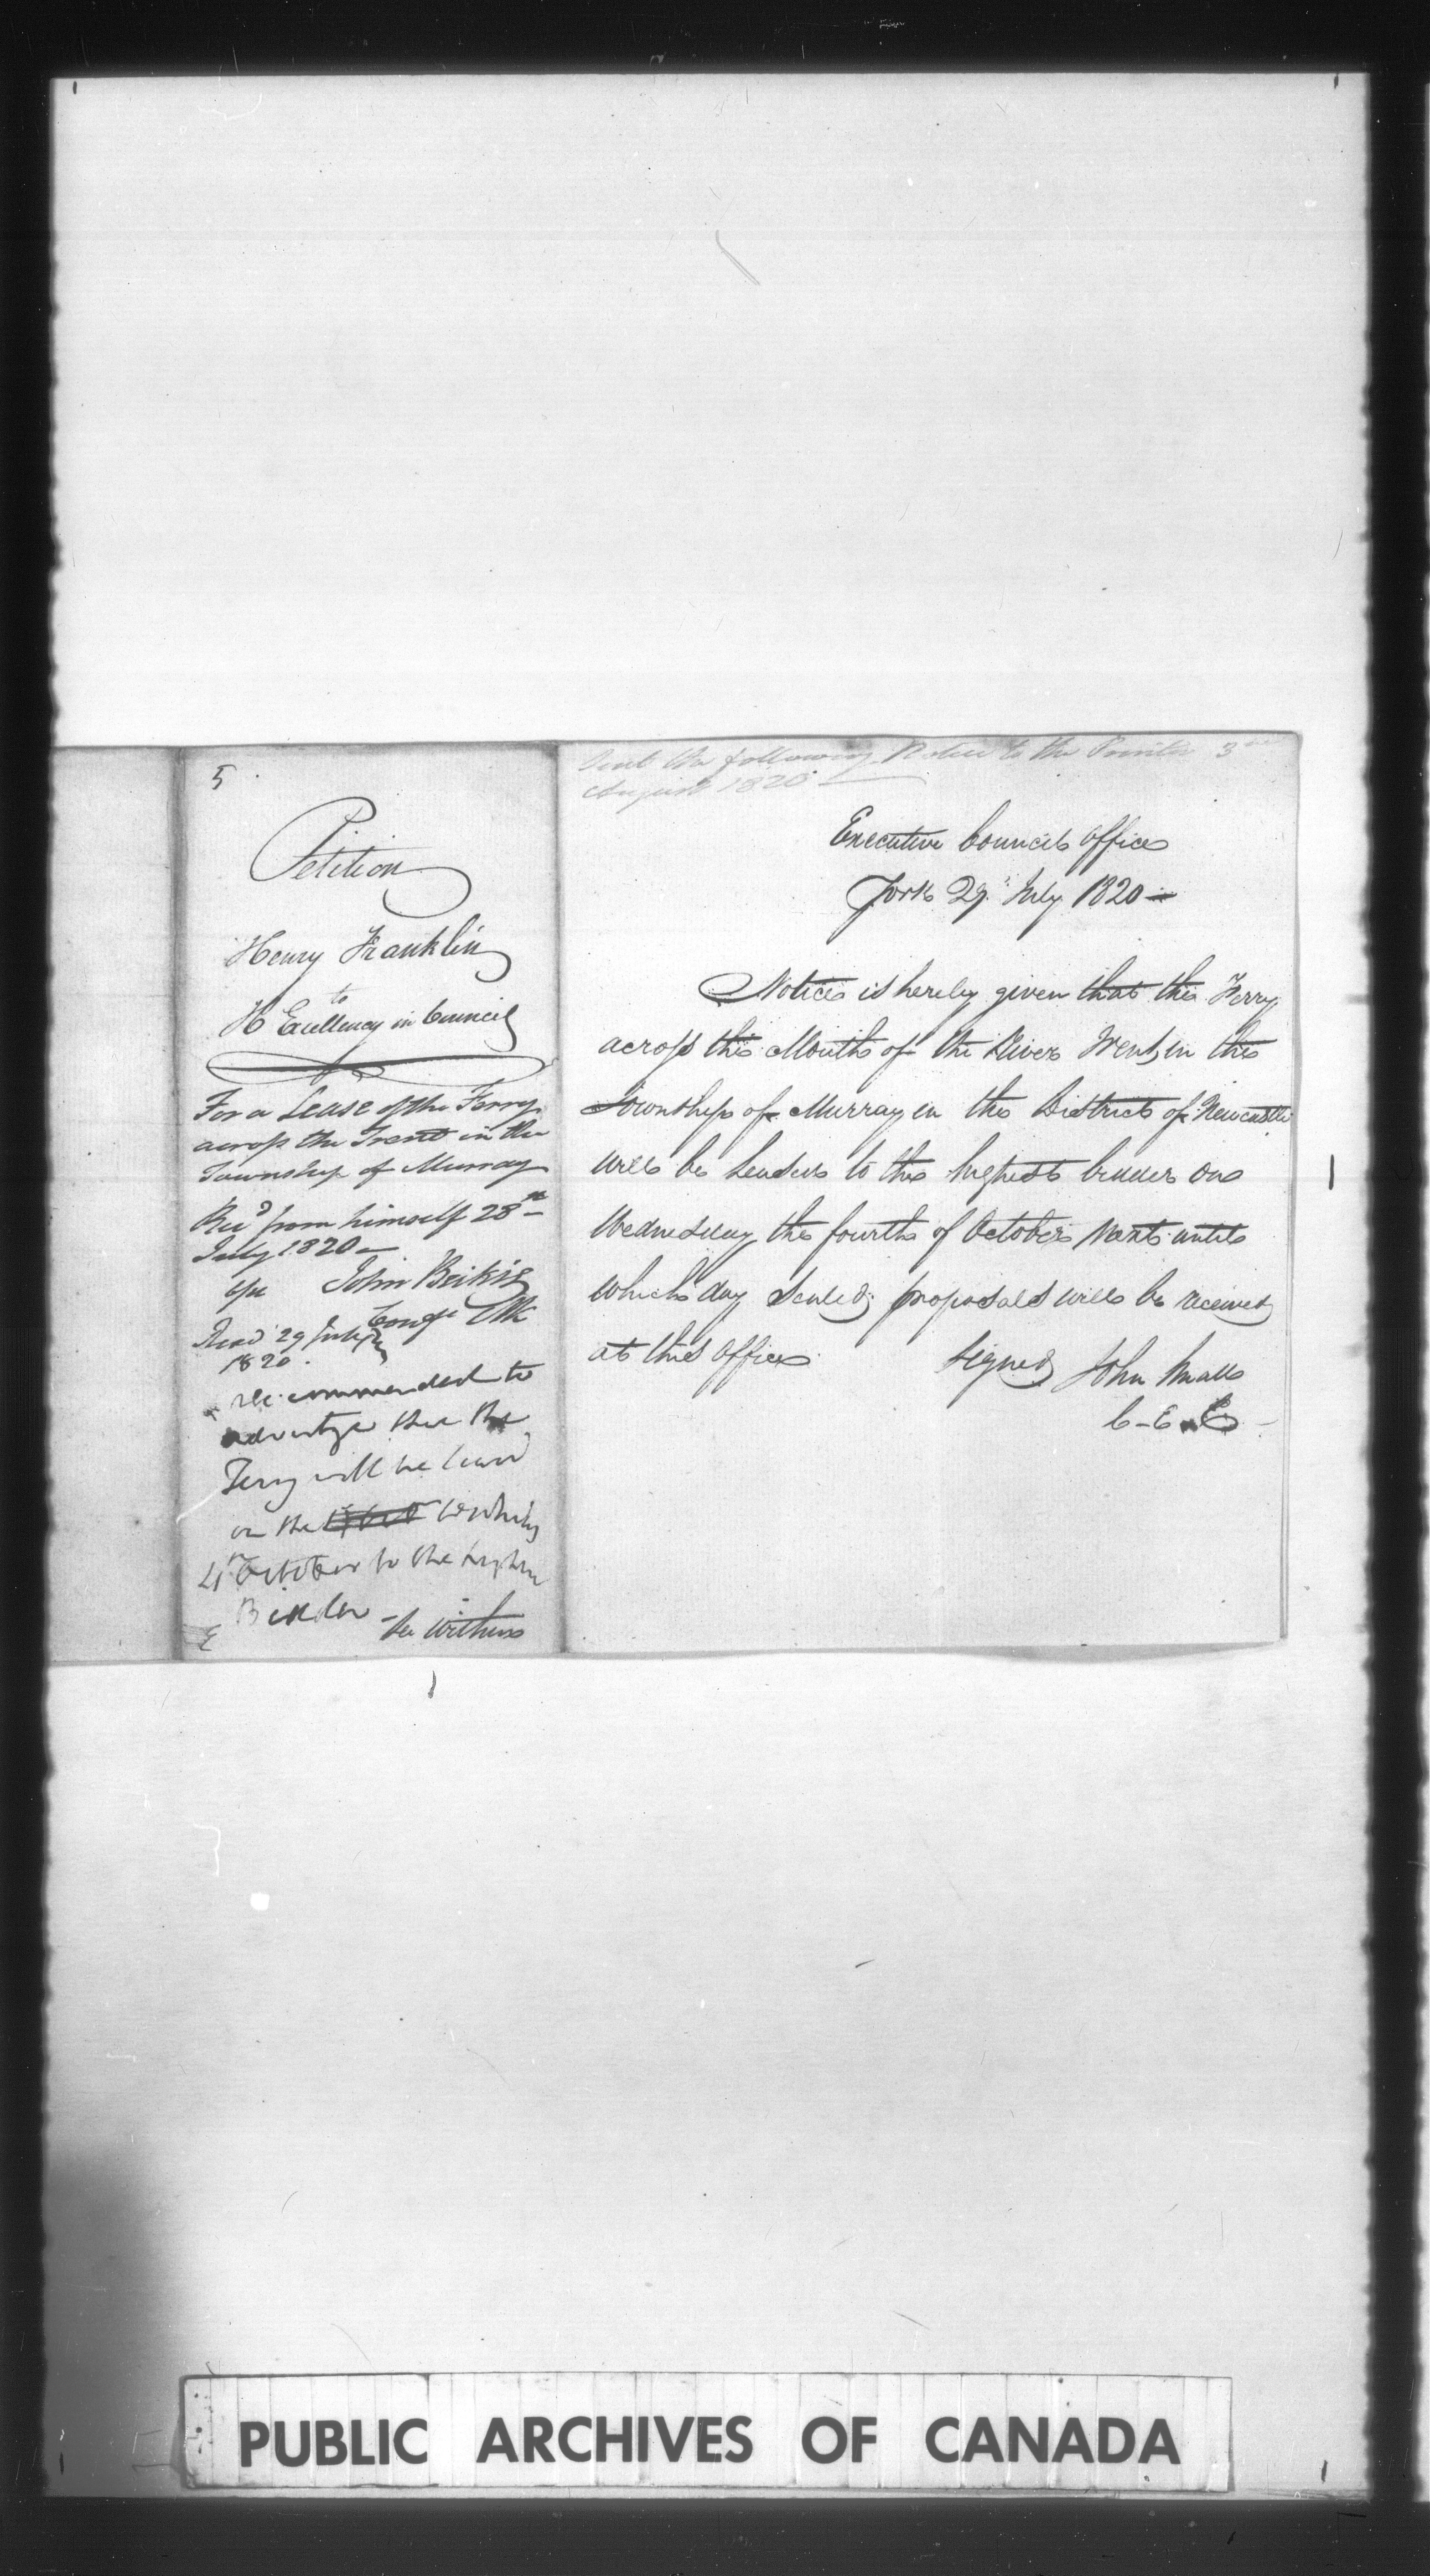 5
Petition
Henry Franklin
to
H Excellency in Council
For a Lease of the Ferry
across the Trent in the
Township of Murray
Recd from himself 28th
July 1820 —
John Beikie
Confl Clk
Read 29 July
1820.
recommended to
advertize that the
Ferry will be leased
on the Wednesday
4th October to the highest
Bidder - See Within
Sent the following Notice to the Printer 3rd
August 1820 —
Executive Council Office
York 29. July 1820 —
Notice is hereby given that the Ferry
across the Mouth of the River Trent, in the
Township of Murray in the District of Newcastle
will be Leased to the highest bidder on
Wednesday the fourth of October next until
which day Sealed proposals will be received
at this Office
Signed John Small
C. E. C
PUBLIC ARCHIVES OF CANADA